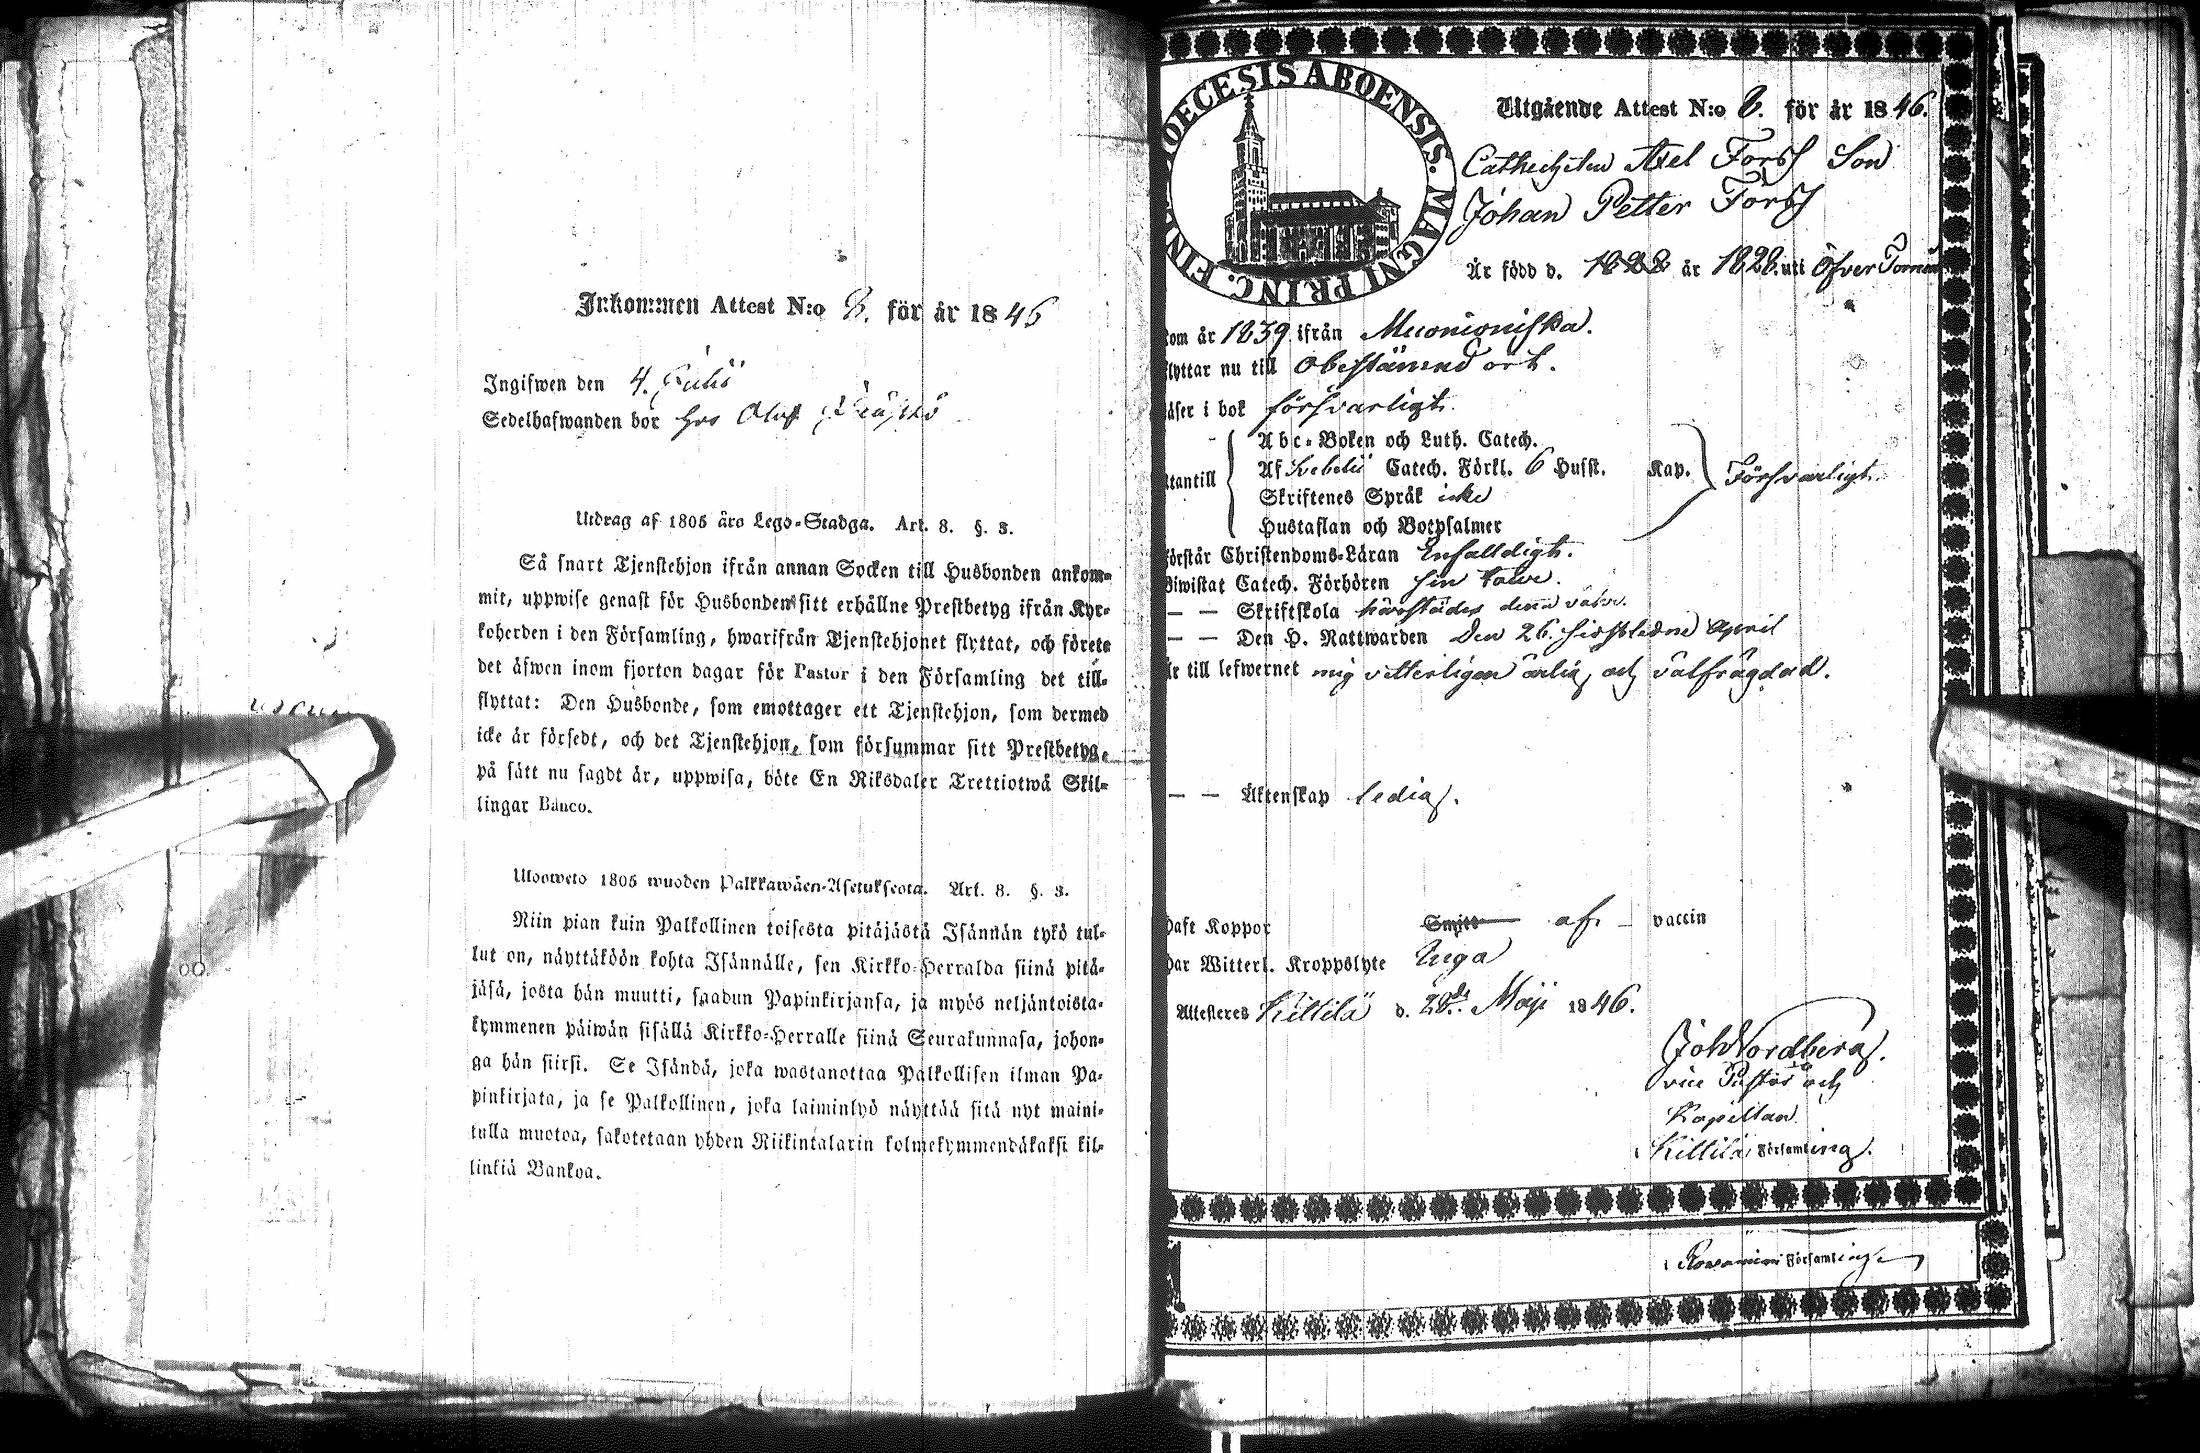 Inkommen Attest N:o 8. för år 1846
Ingifwen den 4. Julii
Sedelhafwanden bor hos Olof
Utdrag af 1805 års Lego-Stadga. Art. 8. §. 3.
Så snart Tjenstehjon ifrån annan Socken till Husbonden ankom-
mit, uppwise genast för Husbonden sitt erhållne Prestbetyg ifrån Kyr-
koherden i den Församling, hwarifrån Tjenstehjonet flyttat, och förete
det äfwen inom fjorton dagar för Pastor i den Församling det till-
flyttat: Den Husbonde, som emottager ett Tjenstehjon, som dermed
icke är försedt, och det Tjenstehjon, som försummar sitt Prestbetyg,
på sätt nu sagdt är, uppwisa, böte En Riksdaler Trettiotwå Skil-
lingar Banco.
Ulosweto 1805 wuoden Palkkawäen-Asetuksesta. Art. 8. §. 3.
Niin pian kuin Palkollinen toisesta pitäjästä Isännän tykö tul-
lut on, näyttäköön kohta Isännälle, sen Kirkko-Herralda siinä pitä-
jäsä, josta hän muutti, saadun Papinkirjansa, ja myös neljäntoista-
kymmenen päiwän sisällä Kirkko-Herralle siinä Seurakunnasa, johon-
ga hän siirsi. Se Isändä, joka wastanottaa Palkollisen ilman Pa-
pinkirjata, ja se Palkollinen, joka laiminlyö näyttää sitä nyt maini-
tulla muotoa, sakotetaan yhden Riikintalarin kolmekymmendäkaksi kil-
linkiä Bankoa.
OECESIS ABOENSIS. MAGNI PRINC. FIN
Utgående Attest N:o 8. för år 1846.
Catecheten Axel Forss Son
Johan Petter Forss
Är född d. 1828 år 1828. uti Öfver Torneå
kom år 1839 ifrån Muonioniska.
flyttar nu till obestämnd ort.
läser i bok försvarligt.
Abc-Boken och Luth. Catech.
Utantill Af Svebelii Catech. Förkl. 6 Hufst. Kap. Försvarligt.
Skriftenes Språk icke
Hustaflan och Botpsalmer
förstår Christendoms-Läran Enfalldigt.
Biwistat Catech. Förhören sin
— — Skriftskola härstädes denna
— — Den H. Nattwarden Den 26. sistledne April
Är till lefwernet mig vitterligen ärlig och välfrägdad.
— — Äktenskap ledig.
Haft Koppor Smitt af – vaccin
Har Witterl. Kroppslyte Inga
Attesteres Kittilä d. 28de Maji 1846.
Joh Nordberg.
vice Pastor och
Kapellan
i Kittilä Församling.
i Rovaniemi Församling